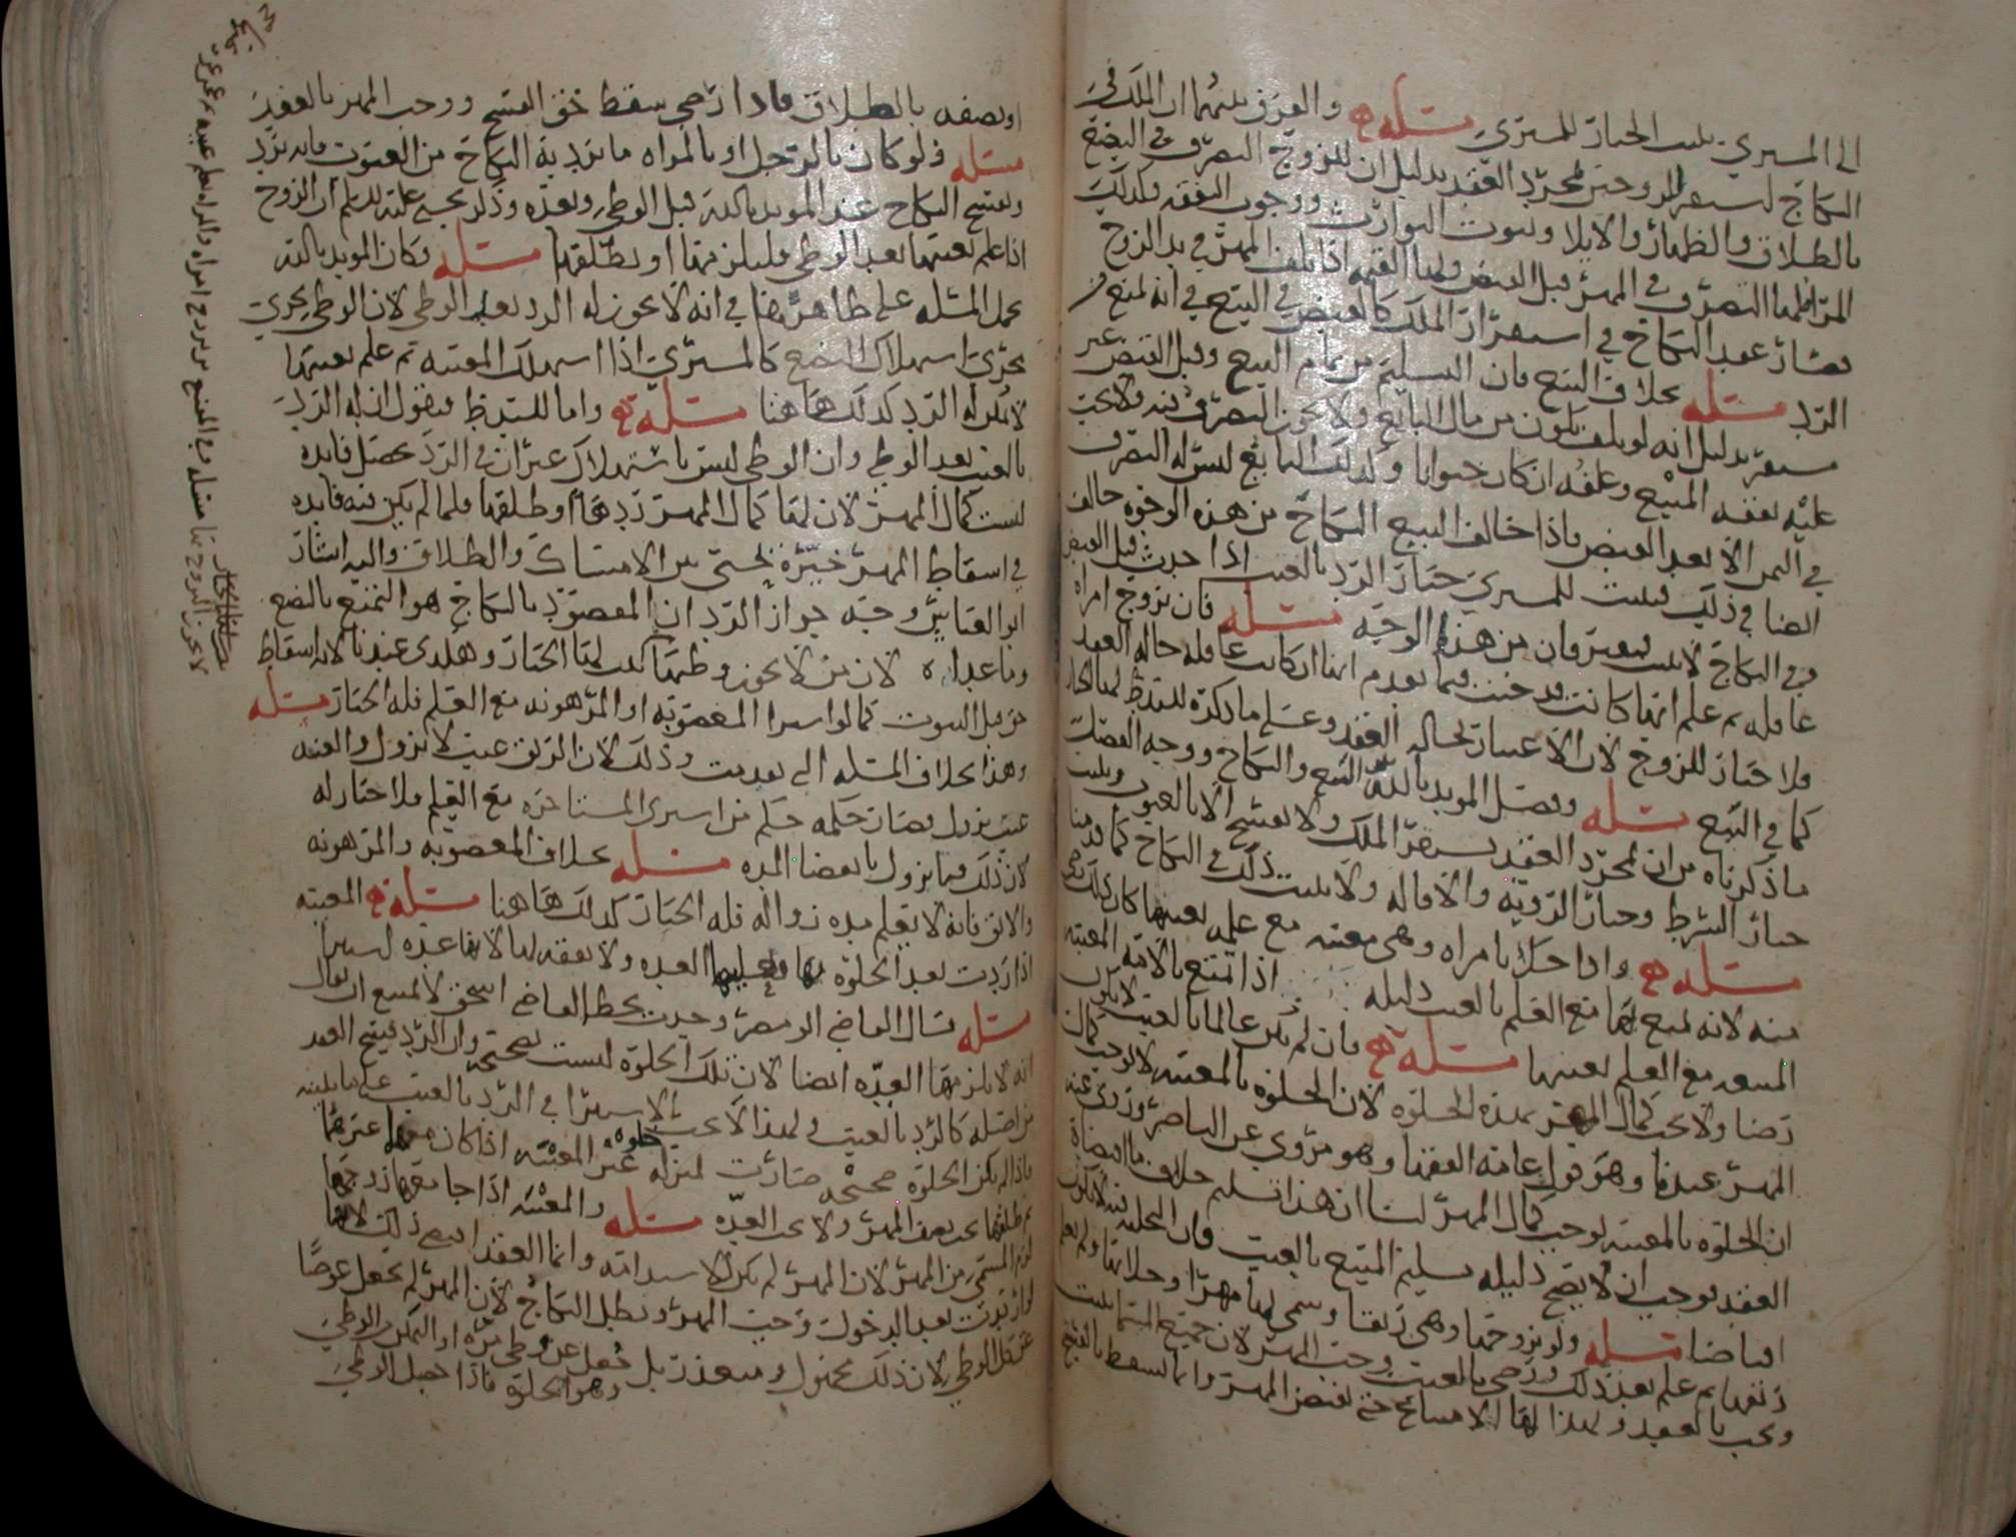 الى المشتري يثبت الخيار للمشتري مسئلة والفرق بينهما ان الملك في
النكاح يستقر للزوجين بمجرد العقد بدليل ان للزوج التصرف في البضع
بالطلاق والظهار والايلا وثبوت التوارث ووجوب النفقه وكذلك
المراه لها التصرف في المهر قبل القبض ولها القيمه اذا تلف المهر في يد الزوج
فصار عقد النكاح في استقرار الملك كالقبض في البيع في انه يمنع من
الرد مسئله بخلاف البيع فان التسليم من تمام البيع وقبل القبض غير
مستقر بدليل انه لو تلف يكون من مال البايع ولا يجوز التصرف فيه ولا يجب
عليه نفقه المبيع وعلفه ان كان حيوانا وكذلك البايع ليس له التصرف
في الثمن الا بعد القبض فاذا خالف البيع النكاح من هذه الوجوه خالف
ايضا في ذلك فيثبت للمشتري خيار الرد بالعيب اذا حدث قبل القبض
وفي النكاح لا يثبت فيفترقان من هذا الوجه مسئله فان تزوج امراه
عاقله ثم علم انها كانت قد جنت فيما تقدم انها ان كانت عاقله حاله العقد
فلا خيار للزوج لان الاعتبار بحاله العقد وعلى ما ذكره
كما في البيع مسئله وفصل المويد بالله البيع والنكاح ووجه الفصل
ما ذكرناه من ان بمجرد العقد يستقر الملك ولا يفسخ الا بالعيوب ويثبت
خيار الشرط وخيار الرويه والاقاله ولا يثبت ذلك في النكاح كما قدمنا
مسئله واذا خلا بامراه وهي معيبه مع علمه بعيبها كان ذلك رضى
منه لانه تمتع بها مع العلم بالعيب دليله اذا تمتع بالامه المعيبه
المبيعه مع العلم بعيبها مسئلة فان لم يكن عالما بالعيب لا يكون
رضا ولا يجب كمال المهر بهذه الخلوه لان الخلوه بالمعيبه لا توجب كمال
المهر عندنا وهو قول عامه الفقها وهو مروي عن الناصر وروي عنه
ان الخلوه بالمعيبه توجب كمال المهر لنا ان هذا تسليم خلاف ما اقتضاه
العقد فوجب ان لا يصح دليله تسليم المبيع بالعيب فان التخليه فيه لا تكون
اقباضا مسئله ولو تزوجها وهي رتقا وسمى لها مهرا وخلا بها ولم يعلم
رتقها ثم علم بعد ذلك ورضي بالعيب وجب المهر لان جميع المسمى يثبت
ويجب بالعقد ولهذا لها الامتناع حتى تقبض المهر وانما يسقط بالفسخ
او نصفه بالطلاق فاذا رضي سقط حق الفسخ ووجب المهر بالعقد
مسئله ولو كان بالرجل او بالمراه ما يرد به النكاح من العيوب فانه يرد
ويفسخ النكاح عند المويد بالله قبل الوطي وبعده وذكر يحيى عليه السلم ان الزوج
اذا علم بعيبها بعد الوطي فليلزمها او يطلقها مسئله فكان المويد بالله
يحمل المسئله على ظاهرها في انه لا يجوز له الرد بعد الوطي لان الوطي يجري
مجرى استهلاك البضع كالمشتري اذا استهلك المعيبه ثم علم بعيبها
لا يكن له الرد كذلك هاهنا مسئلة واما فيقول ان له الرد
بالعيب بعد الوطي وان الوطي ليس باستهلاك غير ان في الرد يحصل فايده
ليست كمال المهر لان لها كمال المهر ردها او طلقها فلما لم يكن فيه فايده
في اسقاط المهر خيره يحيى بين الامساك والطلاق واليه اشار
ابو العباس وجه جواز الرد ان المقصود بالنكاح هو التمتع بالبضع
وما عداه لان من لا يجوز وطيها يثبت لها الخيار وهكذى عندنا لانه اسقاط
حق قبل الثبوت كما لو اشترا المغصوبه او المرهونه مع العلم فله الخيار مسئله
وهذا بخلاف المسئله التي تقدمت وذلك لان الرتق عيب لا يزول والعنه
عيب يزول فصار حكمه حكم من اشترى المستاجره مع العلم فلا خيار له
لان ذلك فيما يزول بانقضا المده مسئله بخلاف المغصوبه والمرهونه
والابق فانه لا يعلم مده زواله فله الخيار كذلك هاهنا مسئلة المعيبه
اذا ردت بعد الخلوه بها فعليها العده ولا نفقه لها لانها عده ليست
مسئله قال القاضي ابو مضر وجدت بخط القاضي اسحق لا يمتنع ان يقال
انه لا يلزمها العده ايضا لان تلك الخلوه ليست بصحيحه وان الرد فسخ العقد
من اصله كالرد بالعيب ولهذا لا يجب الاستبرا في الرد بالعيب على ما يثبته
فاذا لم تكن الخلوه صحيحه صارت بمنزله خلوه غير المعيبه اذا كان معهما غيرهما
ثم طلقها يجب نصف المهر ولا يجب العده مسئله والمعيبه اذا جامعها زوجها
لزم المسمى من المهر لان المهر لم يكن لاستدامته وانما العقد اوجب ذلك لانها
لو ارتدت بعد الدخول وجب المهر وبطل النكاح لان المهر لم يجعل عوضا
عن كل الوطي لان ذلك مجهول ومتعذر بل جعل عن وطي مره او التمكن من الوطي
وهو الخلوه فاذا حصل الوطي